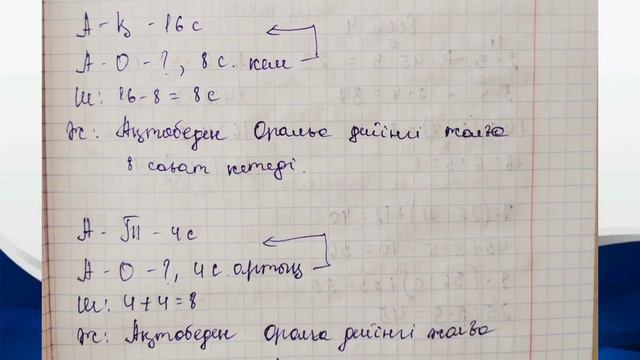 А - Қ - 16 с
А - О - ?, 8 с. кем
Ш: 16 - 8 = 8 с
Ж: Ақтөбеден Оралға дейінгі жолға
8 сағат кетеді.
А - Ш - 4 с
А - О - ?, 4 с. артық
Ш: 4 + 4 = 8
Ж: Ақтөбеден Оралға дейінгі жолға